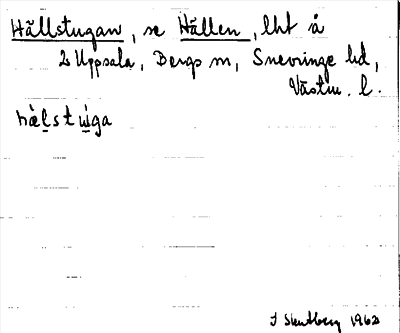 Hällstugan, se Hällen, lht å
2 Uppsala, Bergs sn, Snevringe hd,
Västm. l.
hæ̀lstẁga
1962